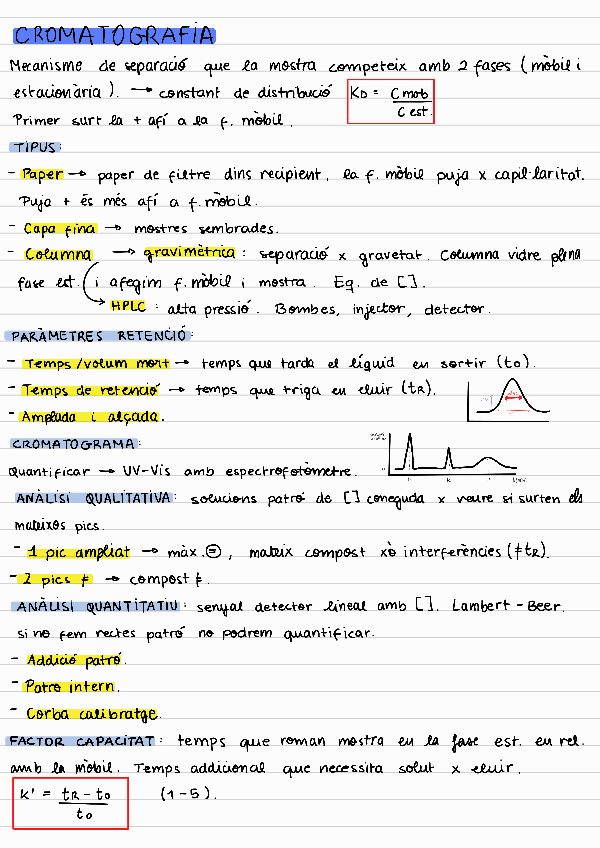 CROMATOGRAFIA
Mecanisme de separació que la mostra competeix amb 2 fases (mòbil i
estacionària). → constant de distribució KD = C mob / C est.
Primer surt la + afí a la f. mòbil.
TIPUS:
- Paper → paper de filtre dins recipient, la f. mòbil puja x capil·laritat.
Puja + és més afí a f. mòbil.
- Capa fina → mostres sembrades.
- Columna → gravimètrica: separació x gravetat. Columna vidre plena
fase est. i afegim f. mòbil i mostra. Eq. de [ ].
→ HPLC: alta pressió. Bombes, injector, detector.
PARÀMETRES RETENCIÓ:
- Temps/volum mort → temps que tarda el líquid en sortir (to).
- Temps de retenció → temps que triga en eluir (tR).
- Amplada i alçada.
CROMATOGRAMA:
Quantificar → UV-Vis amb espectrofotòmetre.
ANÀLISI QUALITATIVA: solucions patró de [ ] coneguda x veure si surten els
mateixos pics.
- 1 pic ampliat → màx. =, mateix compost xò interferències (≠ tR).
- 2 pics ≠ → compost ≠.
ANÀLISI QUANTITATIU: senyal detector lineal amb [ ]. Lambert-Beer.
si no fem rectes patró no podrem quantificar.
- Addició patró.
- Patro intern.
- Corba calibratge.
FACTOR CAPACITAT: temps que roman mostra en la fase est. en rel.
amb la mòbil. Temps addicional que necessita solut x eluir.
K' = tR - to / to (1-5).